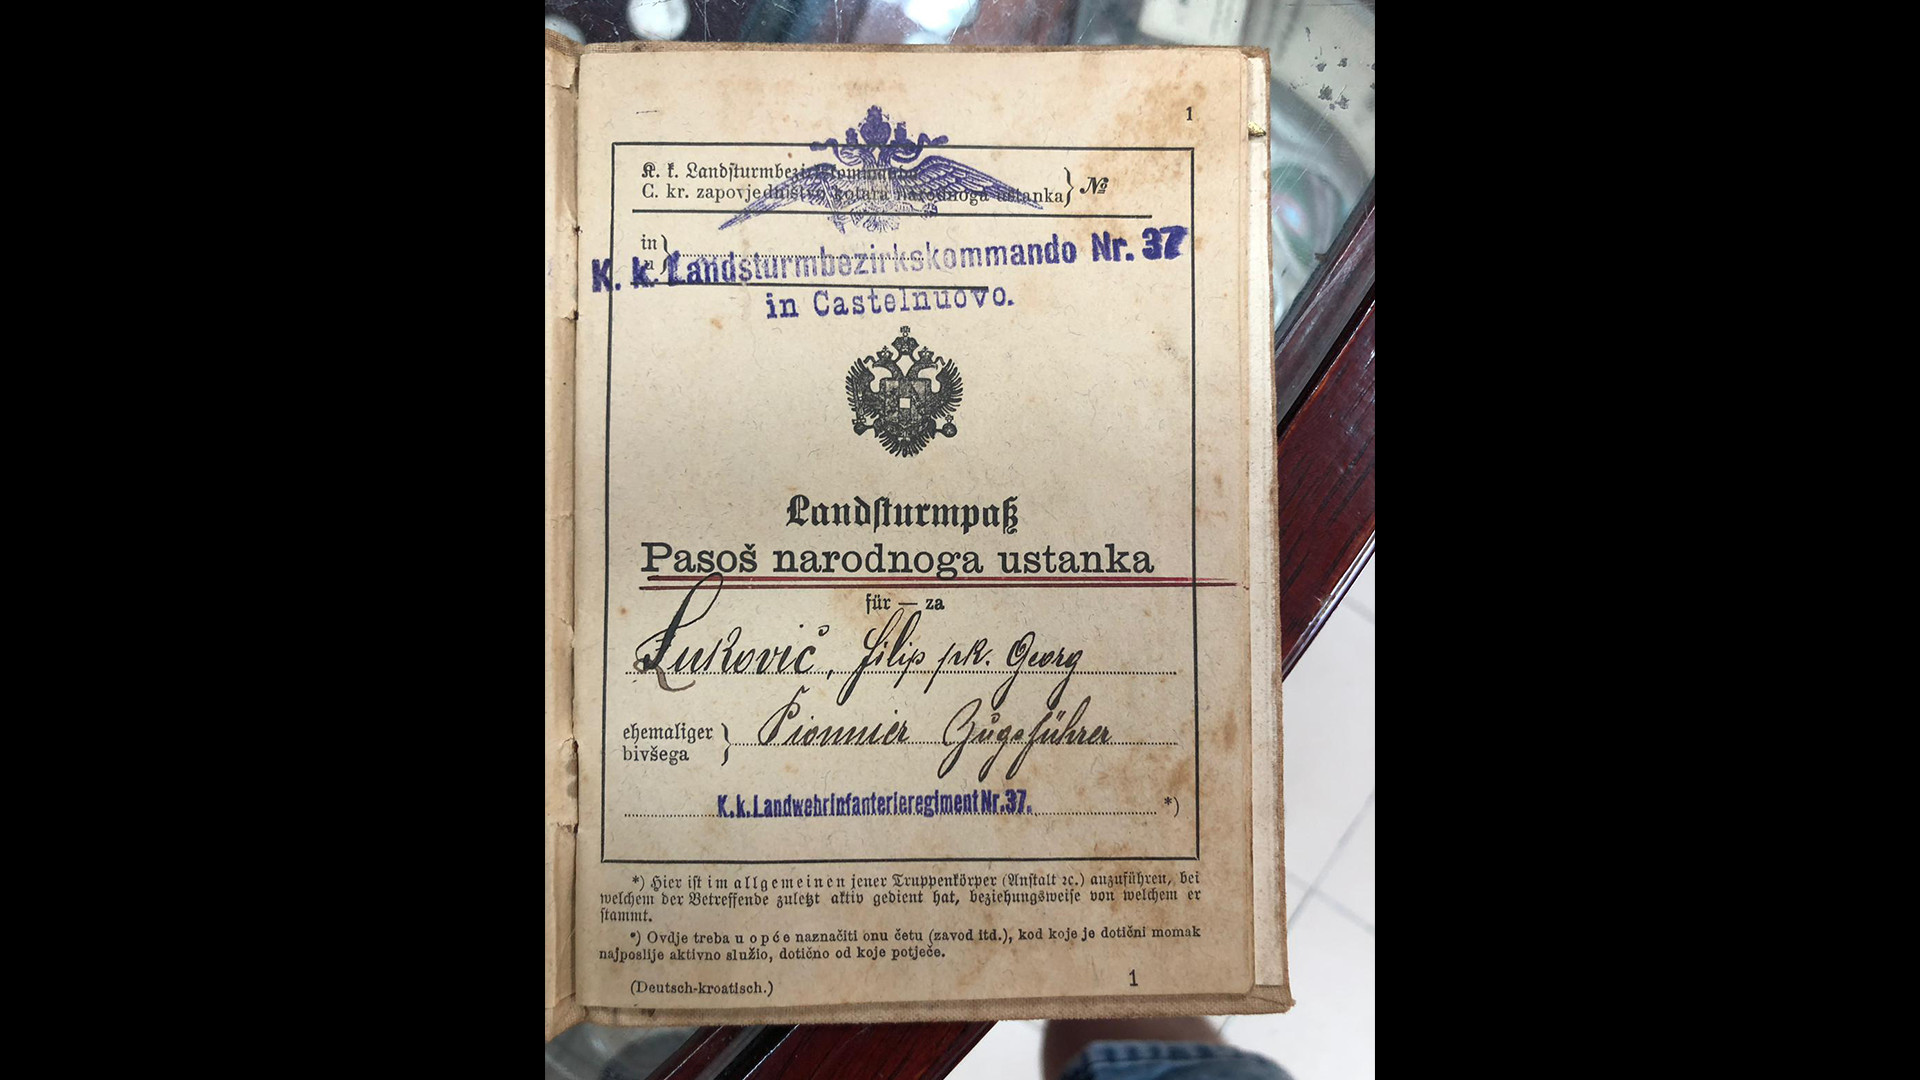 1
K. k. Landsturmbezirkskommando
C. kr. zapovjedništvo kotara narodnoga ustanka } №
in
u }
K. k. Landsturmbezirkskommando Nr. 37
in Castelnuovo.
Landſturmpaß
Pasoš narodnoga ustanka
für — za
Luković, Filip pk. Georg
ehemaliger
bivšega } Pionnier Zugsführer
K.k. Landwehrinfanterieregiment Nr. 37. *)
*) Hier iſt im allgemeinen jener Truppenkörper (Anſtalt ꝛc.) anzuführen, bei
welchem der Betreffende zuletzt aktiv gedient hat, beziehungsweiſe von welchem er
ſtammt.
*) Ovdje treba u opće naznačiti onu četu (zavod itd.), kod koje je dotični momak
najposlije aktivno služio, dotično od koje potječe.
(Deutsch-kroatisch.)
1